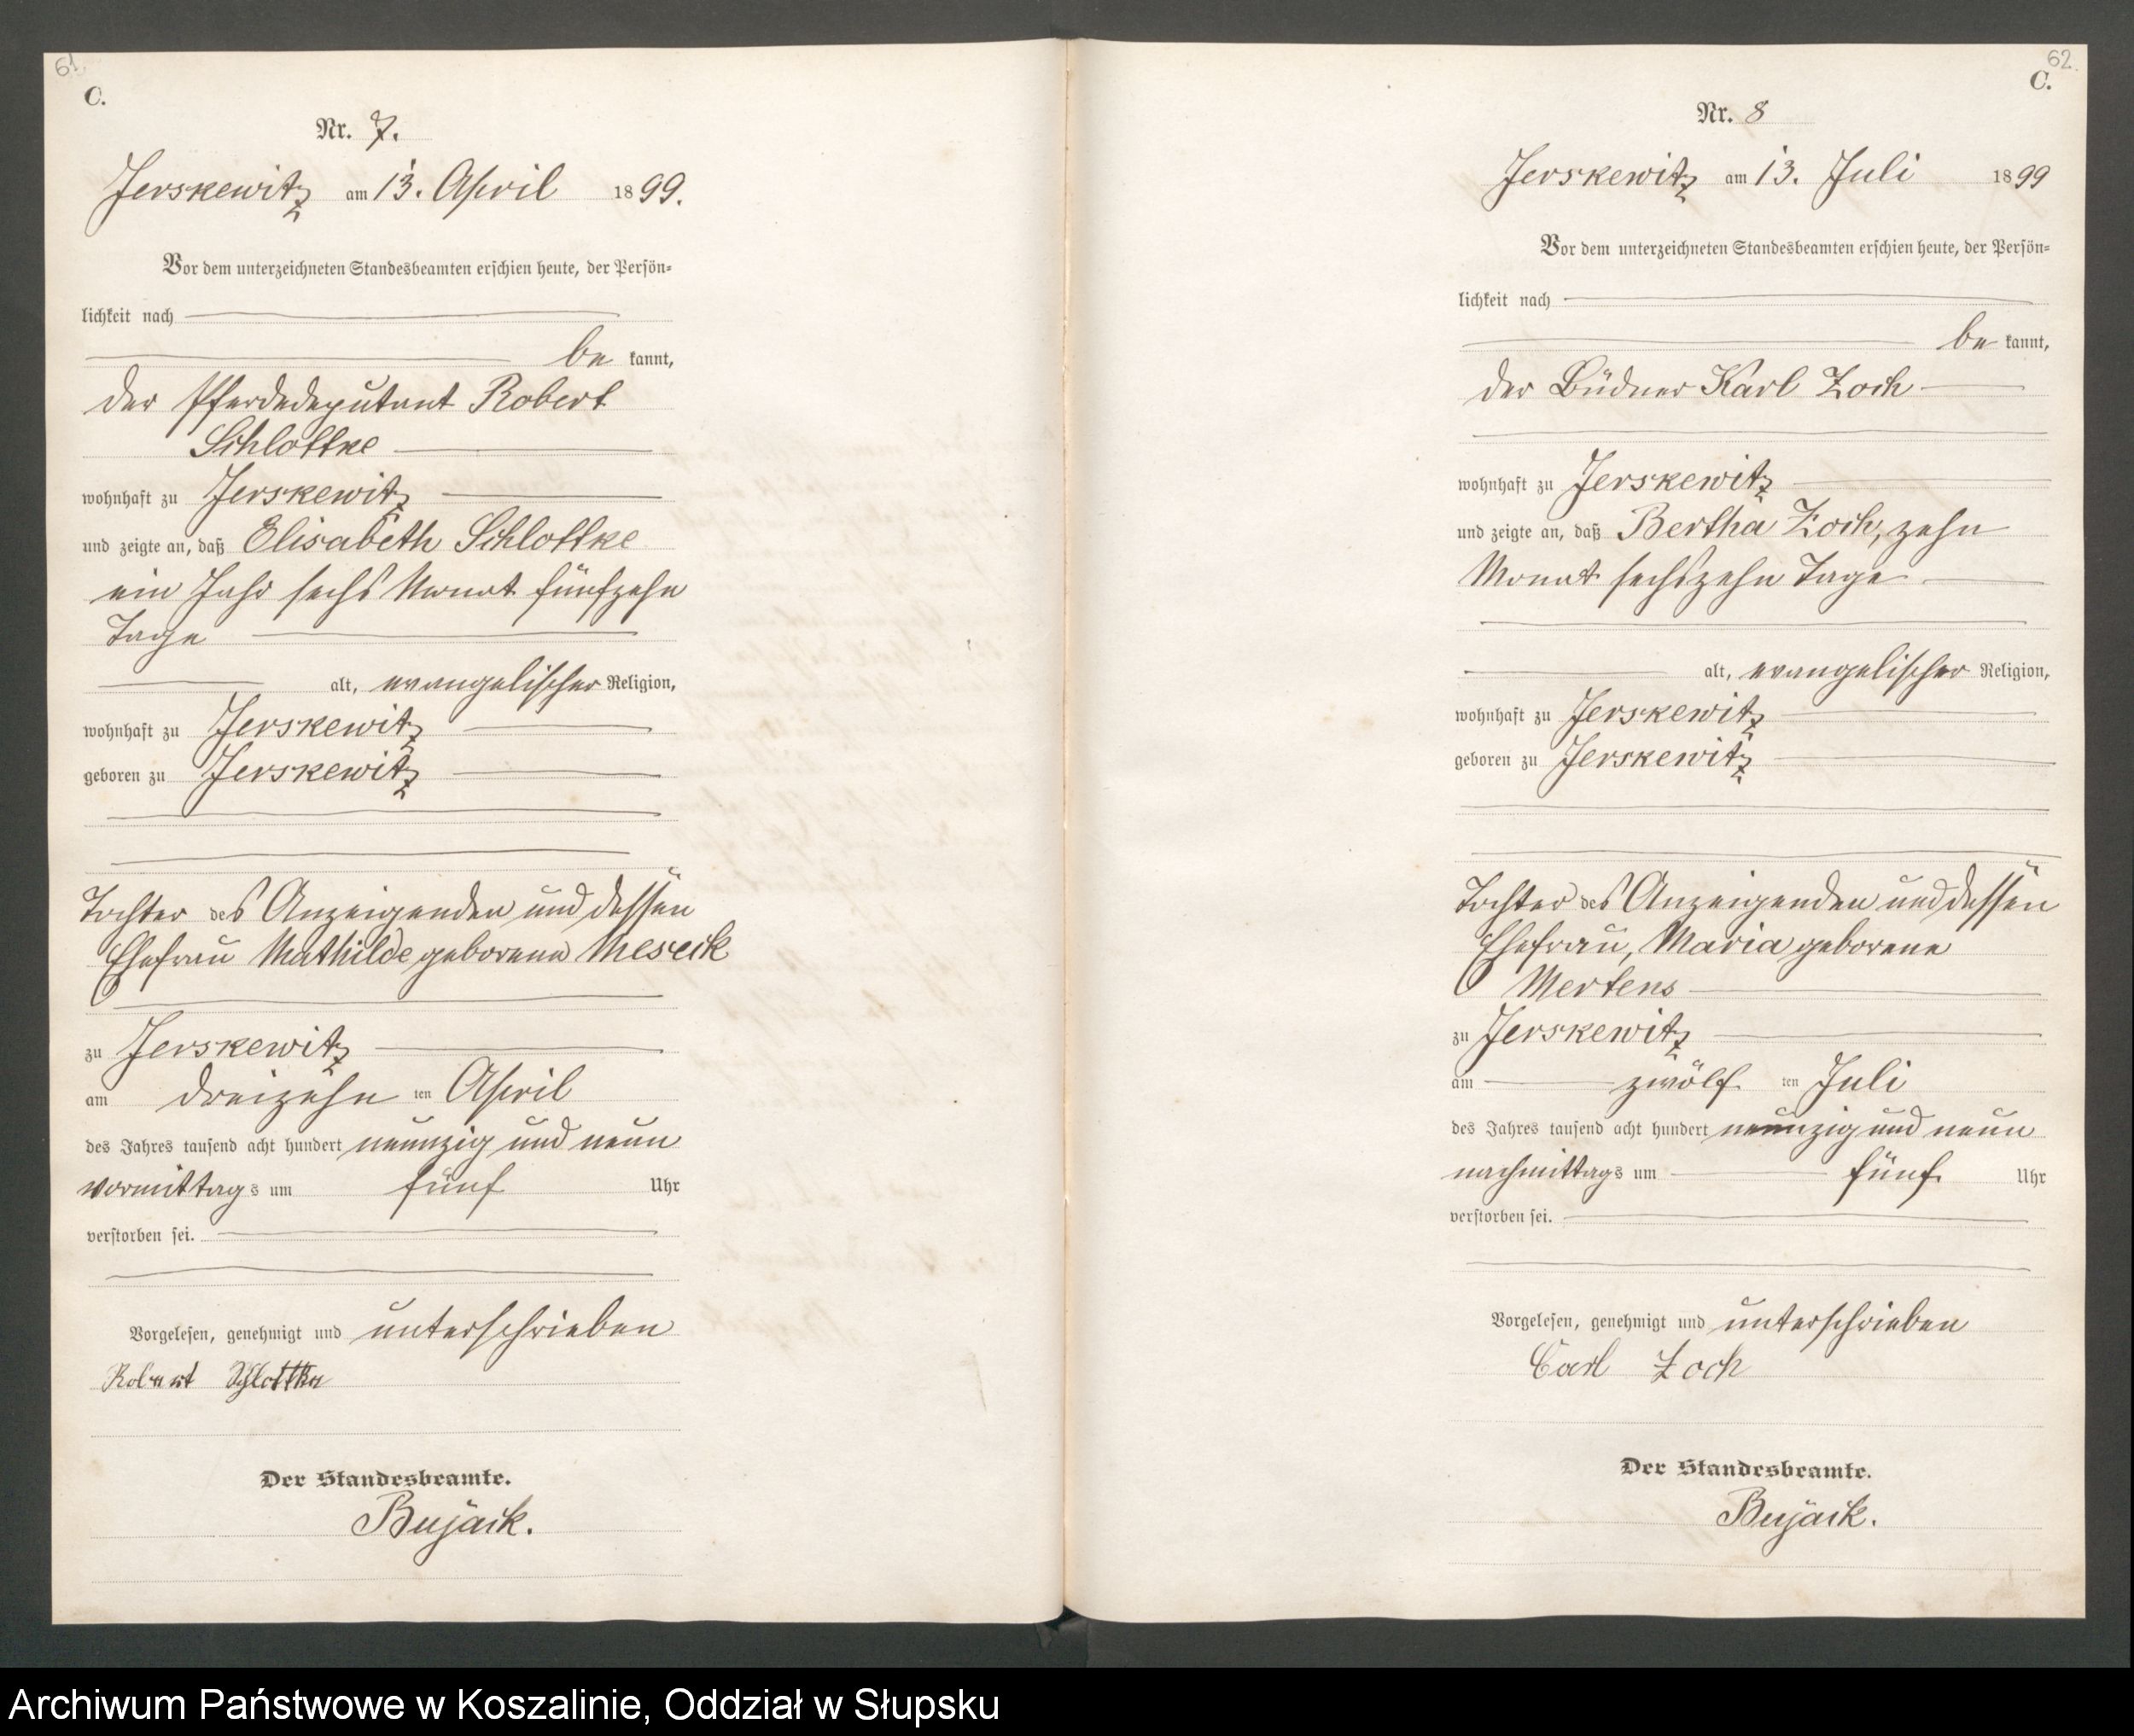 61.
C.
Nr. 7.
Jerskewitz am 13. April 1899.
Vor dem unterzeichneten Standesbeamten erschien heute, der Persön-
lichkeit nach
be kannt,
der Pferdedeputant Robert
Schlottke
wohnhaft zu Jerskewitz
und zeigte an, daß Elisabeth Schlottke
ein Jahr sechs Monat fünfzehn
Tage
alt, evangelischer Religion,
wohnhaft zu Jerskewitz
geboren zu Jerskewitz
Tochter des Anzeigenden und dessen
Ehefrau Mathilde geborene Meseck
zu Jerskewitz
am dreizehn ten April
des Jahres tausend acht hundert neunzig und neun
vormittags um fünf Uhr
verstorben sei.
Vorgelesen, genehmigt und unterschrieben
Robert Schlottke
Der Standesbeamte.
Bujack.
62.
C.
Nr. 8
Jerskewitz am 13. Juli 1899
Vor dem unterzeichneten Standesbeamten erschien heute, der Persön-
lichkeit nach
be kannt,
der Büdner Karl Zoch
wohnhaft zu Jerskewitz
und zeigte an, daß Bertha Zoch, zehn
Monat sechszehn Tage
alt, evangelischer Religion,
wohnhaft zu Jerskewitz
geboren zu Jerskewitz
Tochter des Anzeigenden und dessen
Ehefrau, Maria geborene
Mertens
zu Jerskewitz
am zwölf ten Juli
des Jahres tausend acht hundert neunzig und neun
nachmittags um fünf Uhr
verstorben sei.
Vorgelesen, genehmigt und unterschrieben
Carl Zoch
Der Standesbeamte.
Bujack.
Archiwum Państwowe w Koszalinie, Oddział w Słupsku